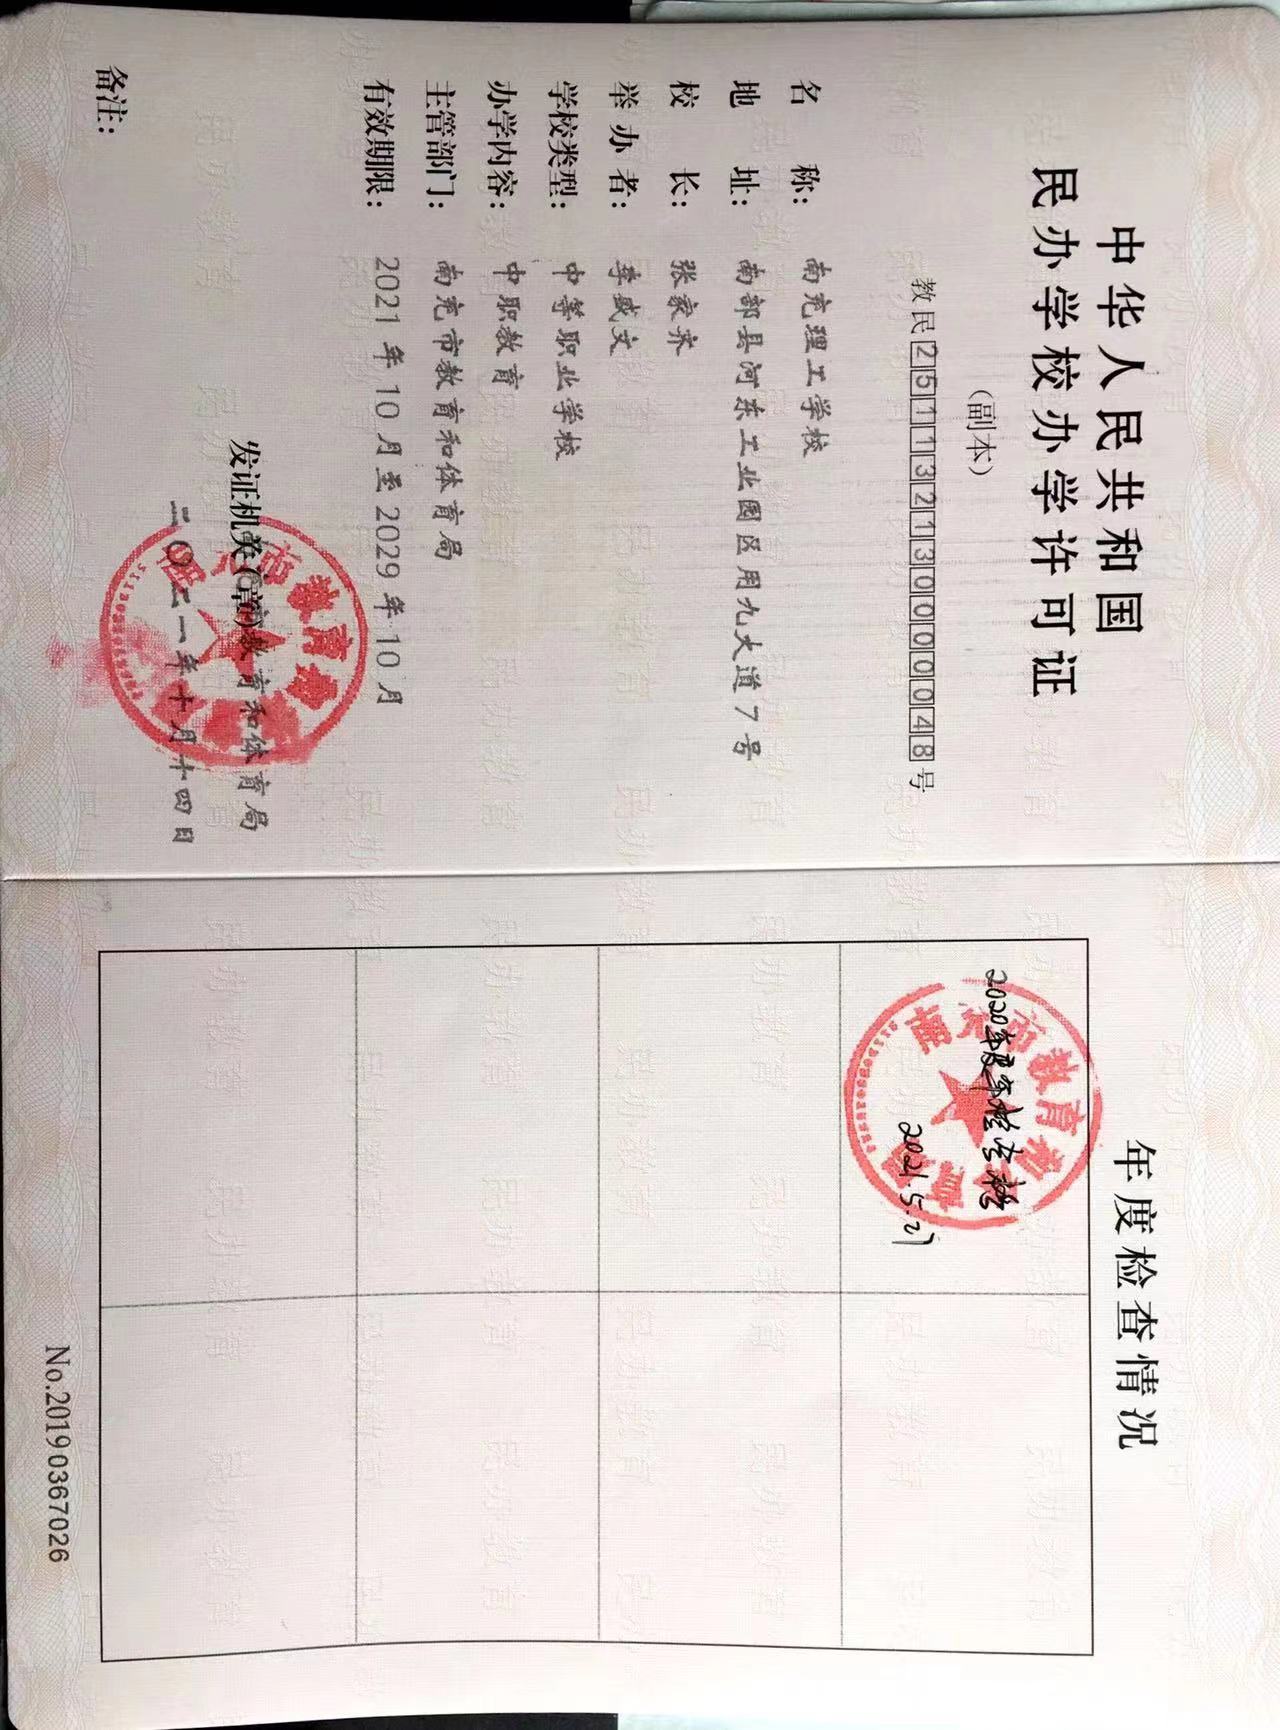 中华人民共和国
民办学校办学许可证
(副本)
教民251132130000048号
名称: 南充理工学校
地址: 南部县河东工业园区用九大道7号
校长: 张家齐
举办者: 李盛文
学校类型: 中等职业学校
办学内容: 中职教育
主管部门: 南充市教育和体育局
有效期限: 2021年10月至2029年10月
发证机关(章)教育和体育局
二〇二一年十月十四日
备注:
年度检查情况
南充市教育和体育局
2020年度年检合格
2021.5.27
No.20190367026